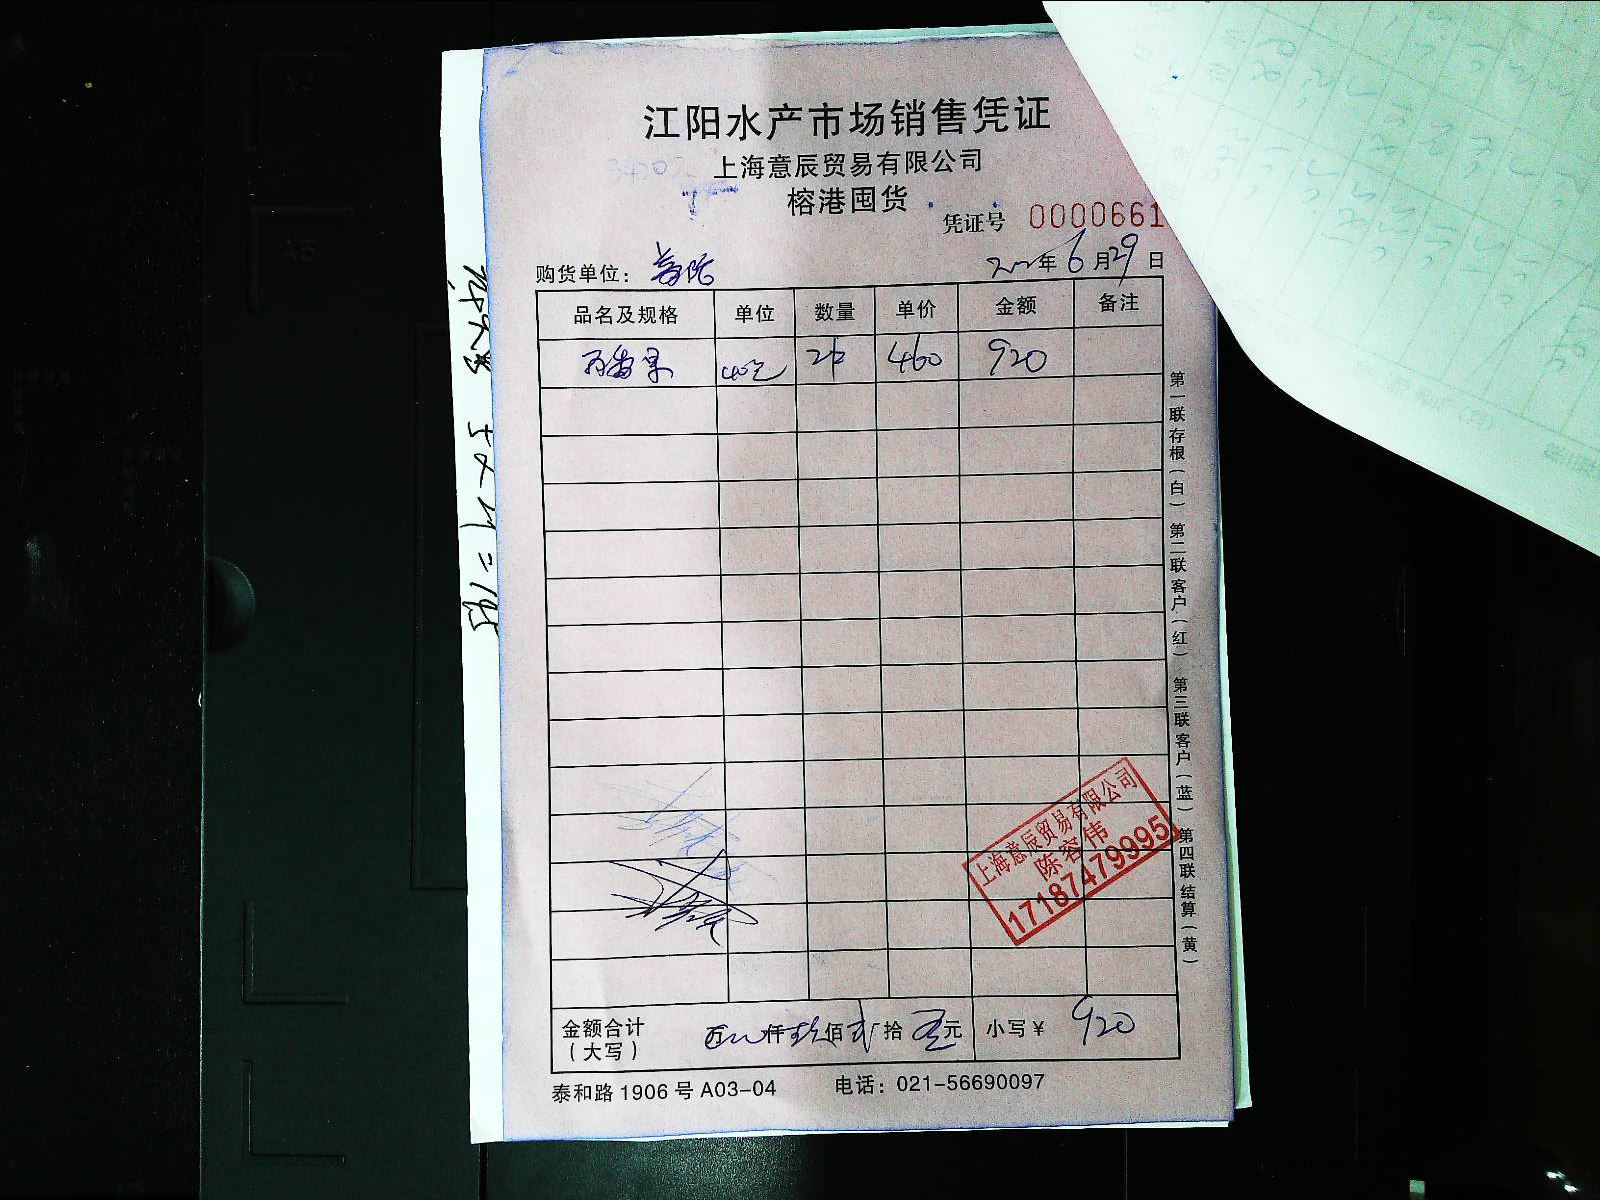 江阳水产市场销售凭证
上海意辰贸易有限公司
榕港囤货
凭证号 0000661
购货单位:
年 6 月 29 日
品名及规格 单位 数量 单价 金额 备注
2件 460 920
第一联存根(白) 第二联客户(红) 第三联客户(蓝) 第四联结算(黄)
上海意辰贸易有限公司
陈容伟
17187479995
金额合计 万 仟 玖 佰 贰 拾 元 小写¥ 920
(大写)
泰和路 1906 号 A03-04 电话: 021-56690097